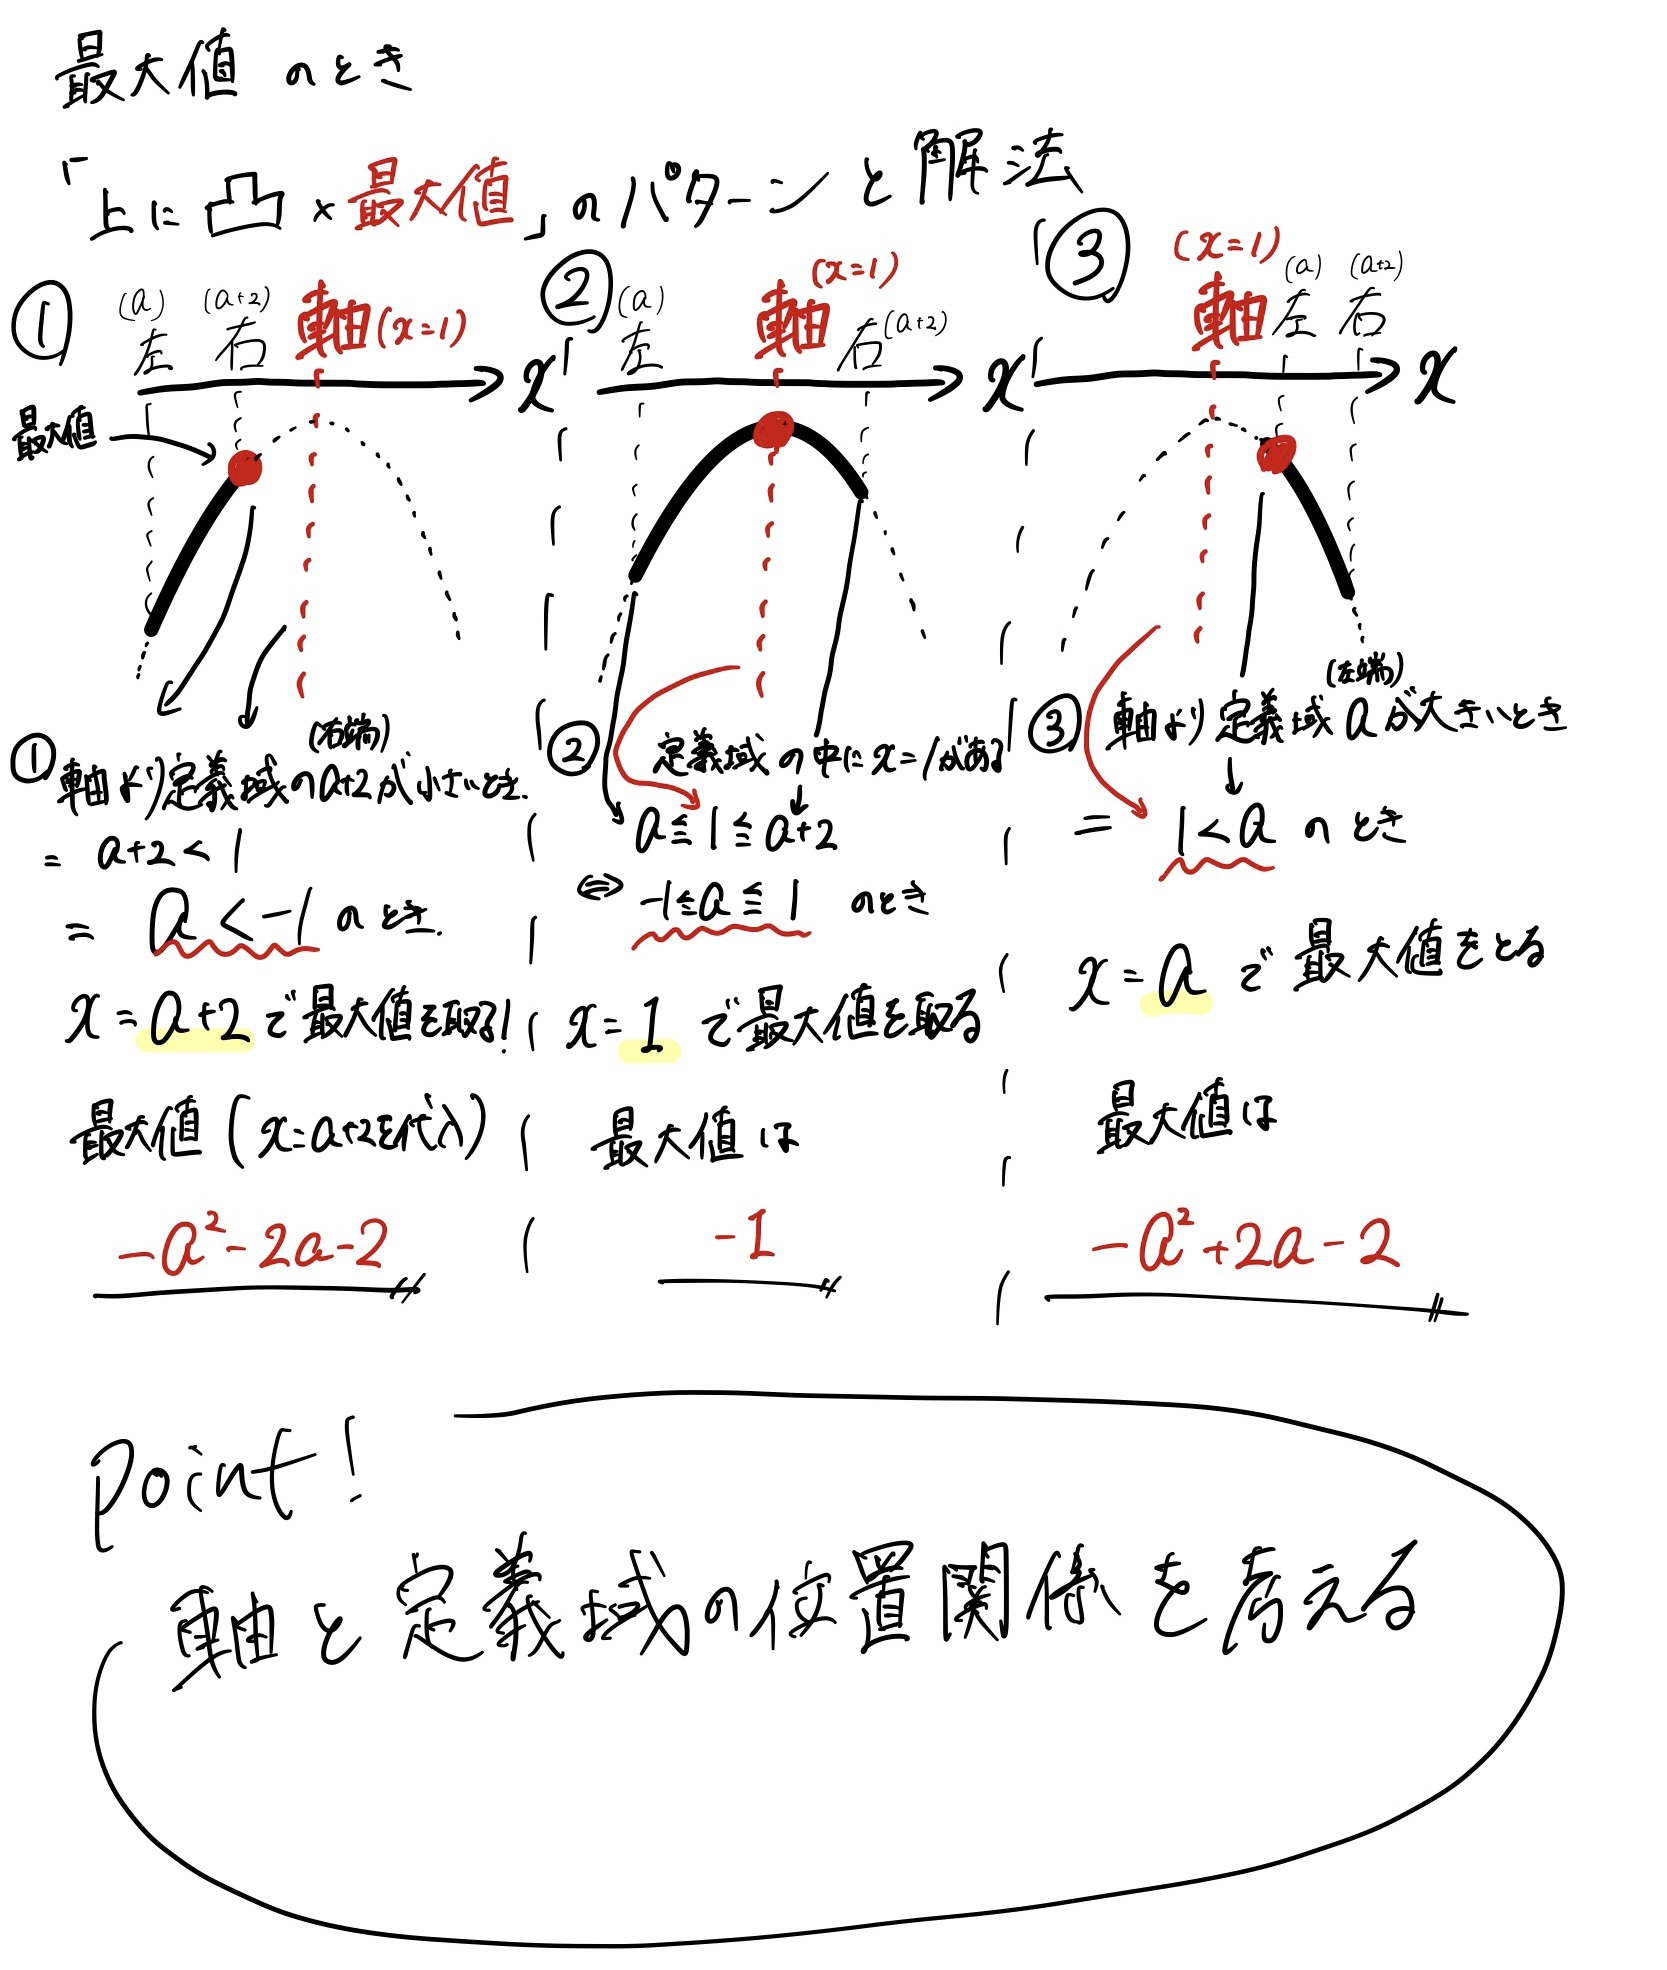 最大値 のとき
「上に凸×最大値」のパターンと解法
① (a) 左 (a+2) 右 軸(x=1) x
最大値
① 軸より定義域のa+2が小さいとき.
(右端)
= a+2<1
= a<-1 のとき.
x=a+2で最大値を取る!
最大値(x=a+2を代入)
-a²-2a-2
② (a) 左 (x=1) 軸 右(a+2) x
② 定義域の中にx=1がある
a≦1≦a+2
⇔ -1≦a≦1 のとき
x=1で最大値を取る
最大値は
-1
③ (x=1) 軸 (a) 左 (a+2) 右 x
③ 軸より定義域aが大きいとき
(左端)
= 1<a のとき
x=aで最大値をとる
最大値は
-a²+2a-2
point!
軸と定義域の位置関係を考える